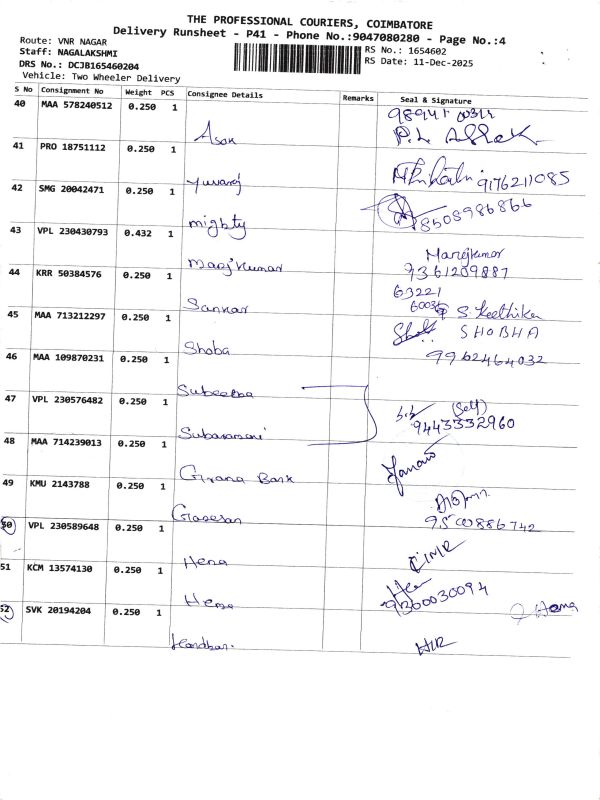 THE PROFESSIONAL COURIERS, COIMBATORE
Delivery Runsheet - P41 - Phone No.:9047080280 - Page No.:4
Route: VNR NAGAR
RS No.: 1654602
Staff: NAGALAKSHMI
RS Date: 11-Dec-2025
DRS No.: DCJB165460204
Vehicle: Two Wheeler Delivery
S No Consignment No Weight PCS Consignee Details Remarks Seal & Signature
40 MAA 578240512 0.250 1 Ason
P.L. Ashok
41 PRO 18751112 0.250 1 Yuvaraj 9176211085
42 SMG 20042471 0.250 1 mighty 8508986866
43 VPL 230430793 0.432 1 Manojkumar Manojkumar
9361209887
44 KRR 50384576 0.250 1 Sankar 63221
S. Keethika
45 MAA 713212297 0.250 1 Shoba SHOBHA
9962464032
46 MAA 109870231 0.250 1
47 VPL 230576482 0.250 1 (Self)
9443332960
48 MAA 714239013 0.250 1 Bank
49 KMU 2143788 0.250 1
50 VPL 230589648 0.250 1 Hena
51 KCM 13574130 0.250 1 Hena
9360030094
Hema
52 SVK 20194204 0.250 1